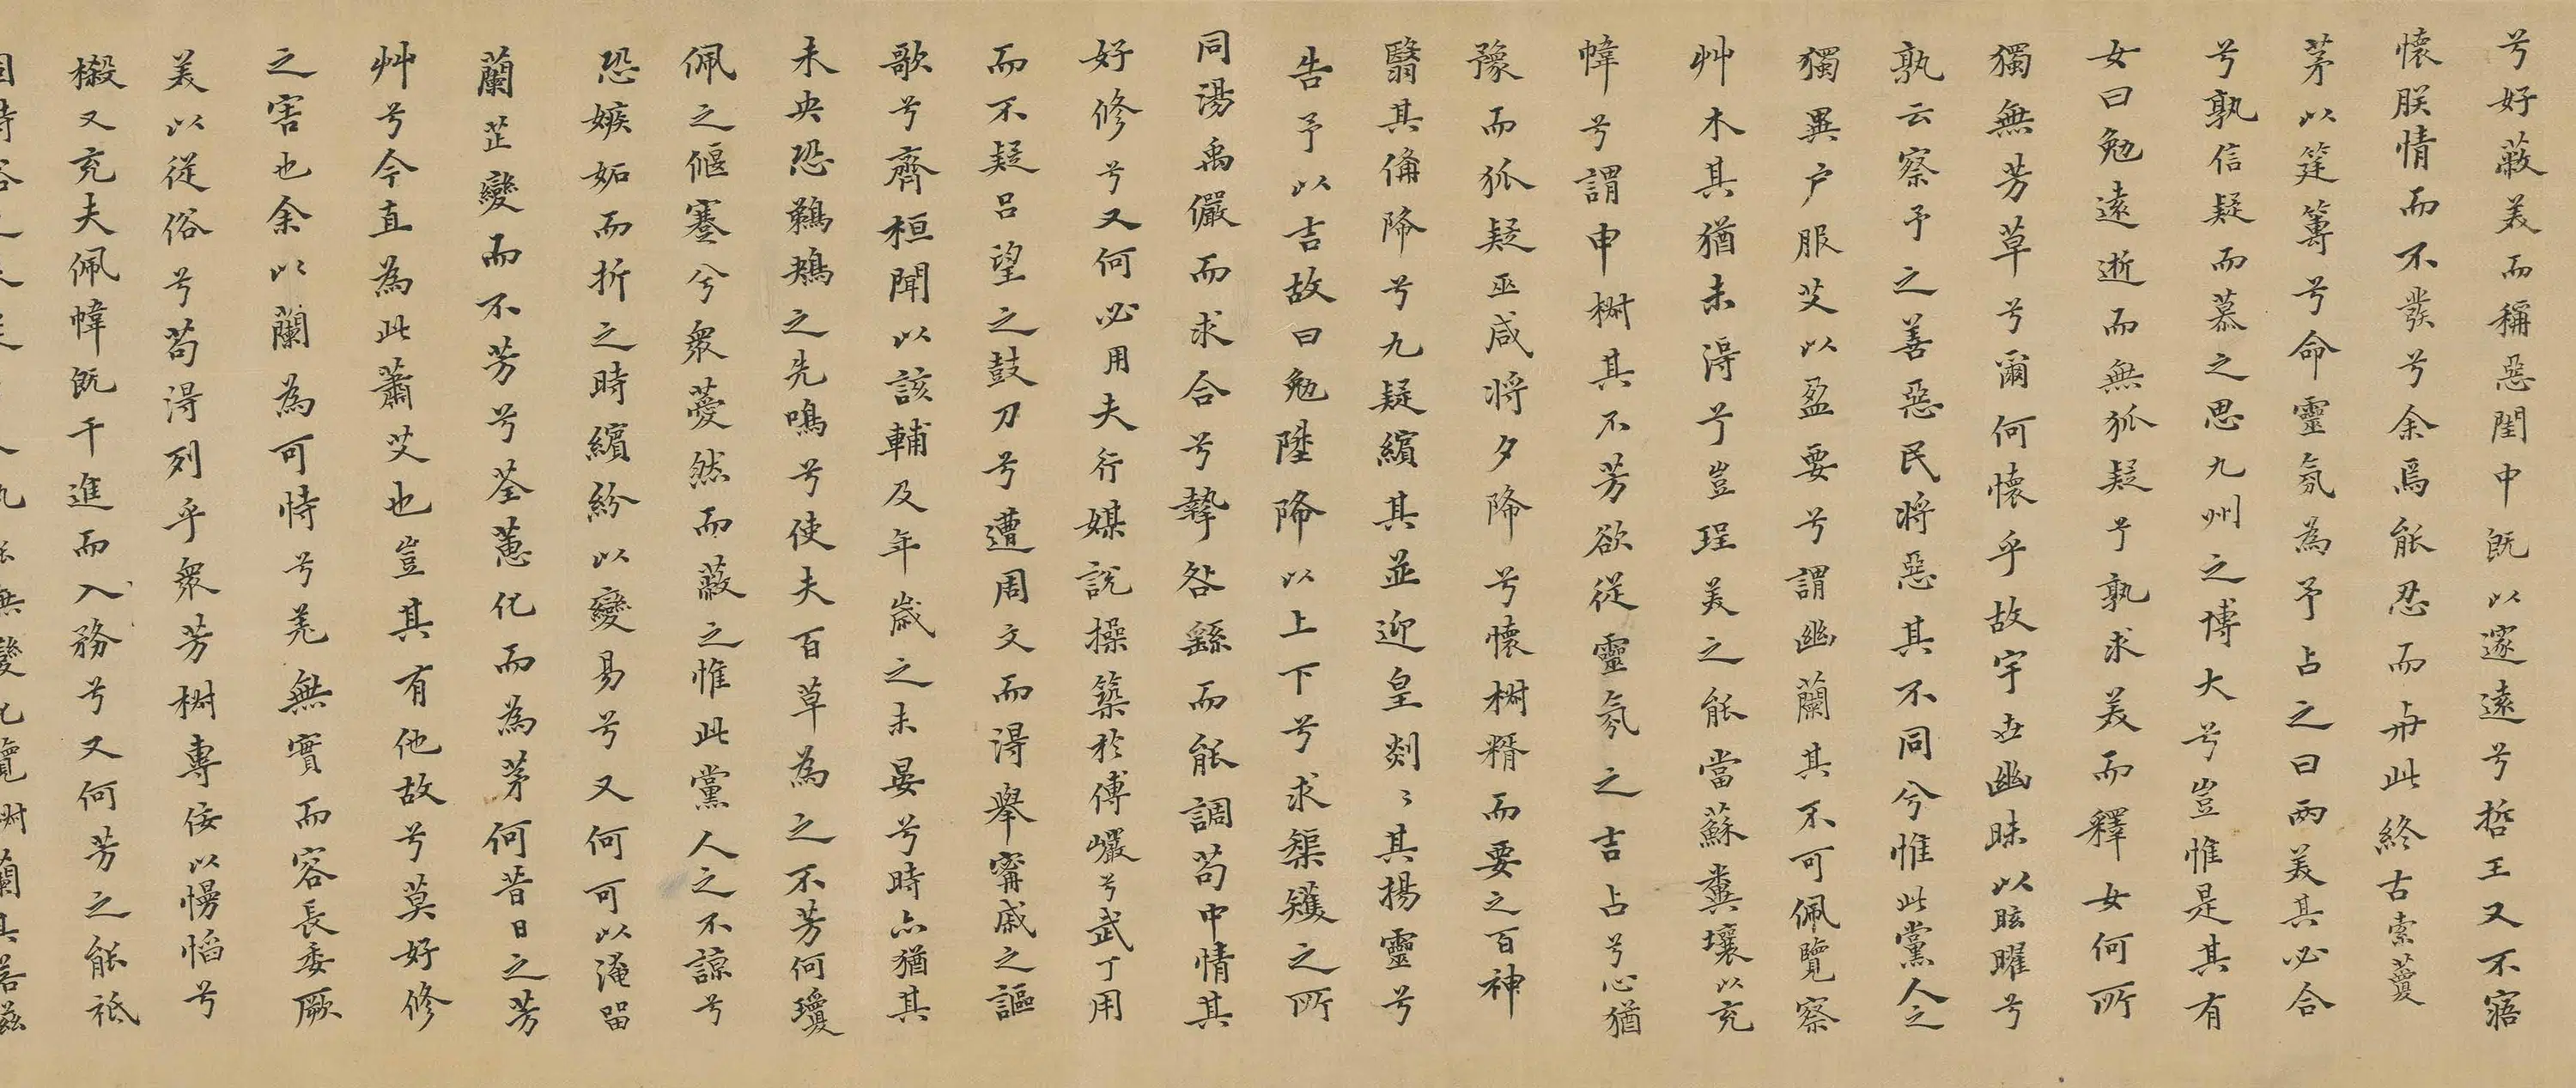 兮好蔽美而稱惡閨中既以邃遠兮哲王又不寤
懷朕情而不發兮余焉能忍而與此終古索藑
茅以筳篿兮命靈氛為予占之曰兩美其必合
兮孰信疑而慕之思九州之博大兮豈惟是其有
女曰勉遠逝而無狐疑兮孰求美而釋女何所
獨無芳草兮爾何懷乎故宇世幽昧以眩曜兮
孰云察予之善惡民將惡其不同兮惟此黨人之
獨異户服艾以盈要兮謂幽蘭其不可佩覽察
艸木其猶未得兮豈珵美之能當蘇糞壤以充
幃兮謂申椒其不芳欲從靈氛之吉占兮心猶
豫而狐疑巫咸將夕降兮懷椒糈而要之百神
翳其備降兮九疑繽其並迎皇剡〻其揚靈兮
告予以吉故曰勉陞降以上下兮求榘矱之所
同湯禹儼而求合兮摯咎繇而能調苟中情其
好修兮又何必用夫行媒說操築於傅巖兮武丁用
而不疑呂望之鼓刀兮遭周文而得舉甯戚之謳
歌兮齊桓聞以該輔及年歲之未晏兮時亦猶其
未央恐鵜鴂之先鳴兮使夫百草為之不芳何瓊
佩之偃蹇兮眾薆然而蔽之惟此黨人之不諒兮
恐嫉妬而折之時繽紛以變易兮又何可以淹留
蘭芷變而不芳兮荃蕙化而為茅何昔日之芳
艸兮今直為此蕭艾也豈其有他故兮莫好修
之害也余以蘭為可恃兮羌無實而容長委厥
美以從俗兮苟得列乎眾芳椒專佞以慢慆兮
樧又充夫佩幃既干進而入務兮又何芳之能祗